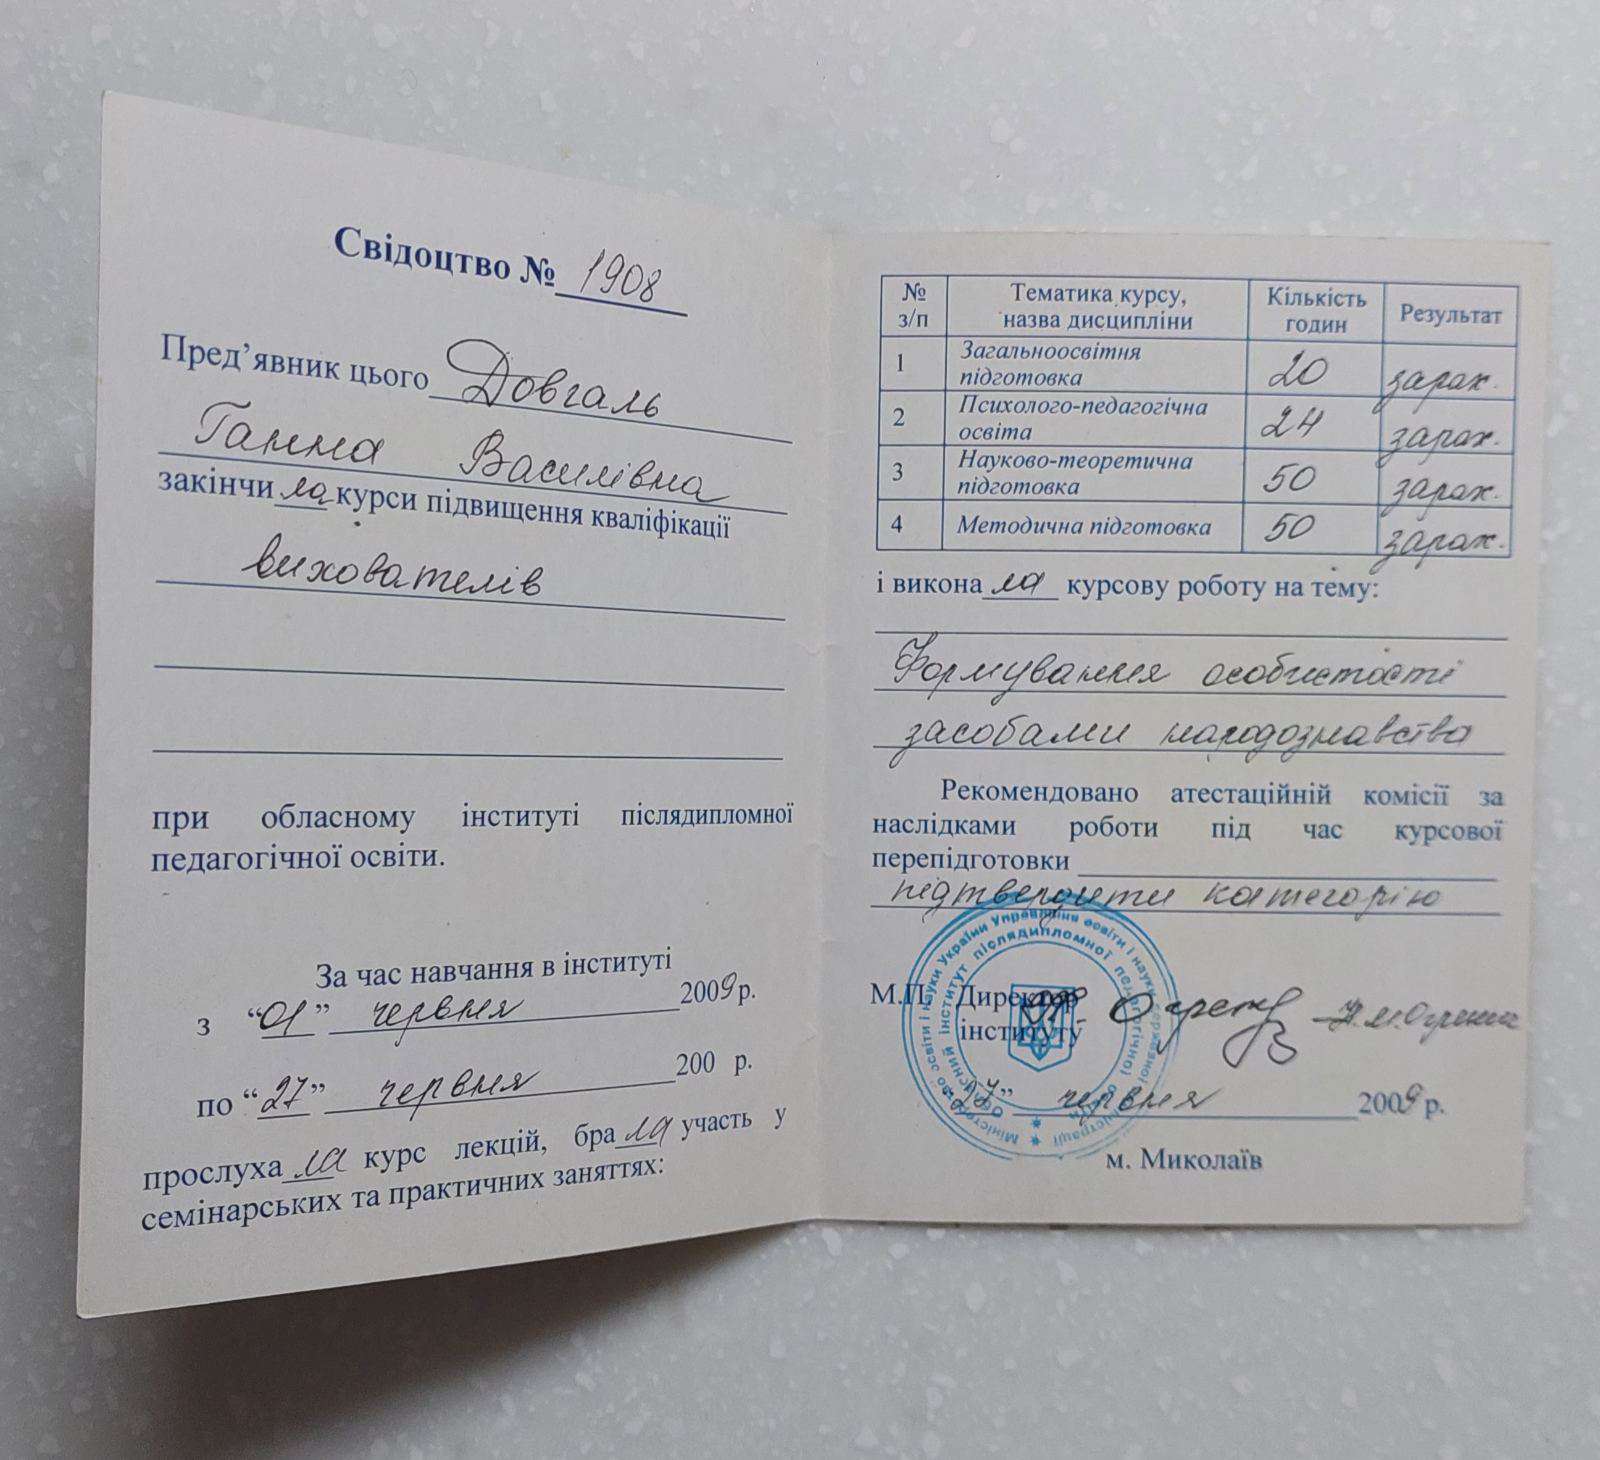 Свідоцтво № 1908
Пред’явник цього Довгаль
Ганна Василівна
закінчила курси підвищення кваліфікації
вихователів
при обласному інституті післядипломної
педагогічної освіти.
За час навчання в інституті
з “01” червня 2009 р.
по “27” червня 200 р.
прослухала курс лекцій, брала участь у
семінарських та практичних заняттях:
№ з/п Тематика курсу, назва дисципліни Кількість годин Результат
1 Загальноосвітня підготовка 20 зарах.
2 Психолого-педагогічна освіта 24 зарах.
3 Науково-теоретична підготовка 50 зарах.
4 Методична підготовка 50 зарах.
і виконала курсову роботу на тему:
Формування особистості
засобами народознавства
Рекомендовано атестаційній комісії за
наслідками роботи під час курсової
перепідготовки
підтвердити категорію
М.П. Директор
інституту
“27” червня 2009 р.
м. Миколаїв